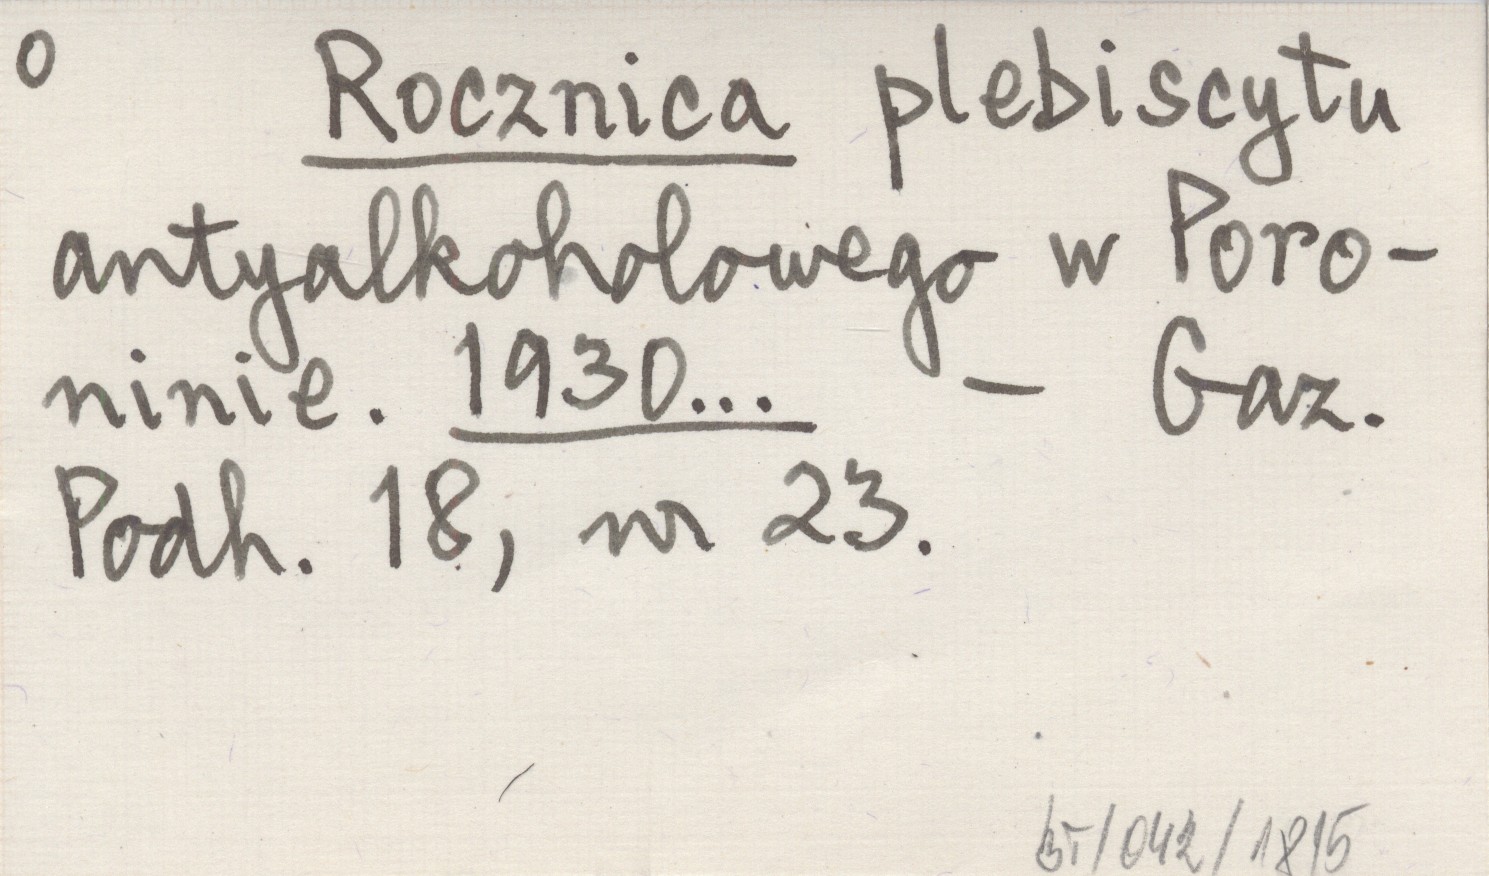 o Rocznica plebiscytu
antyalkoholowego w Poro-
ninie. 1930... – Gaz.
Podh. 18, nr 23.
/042/1815